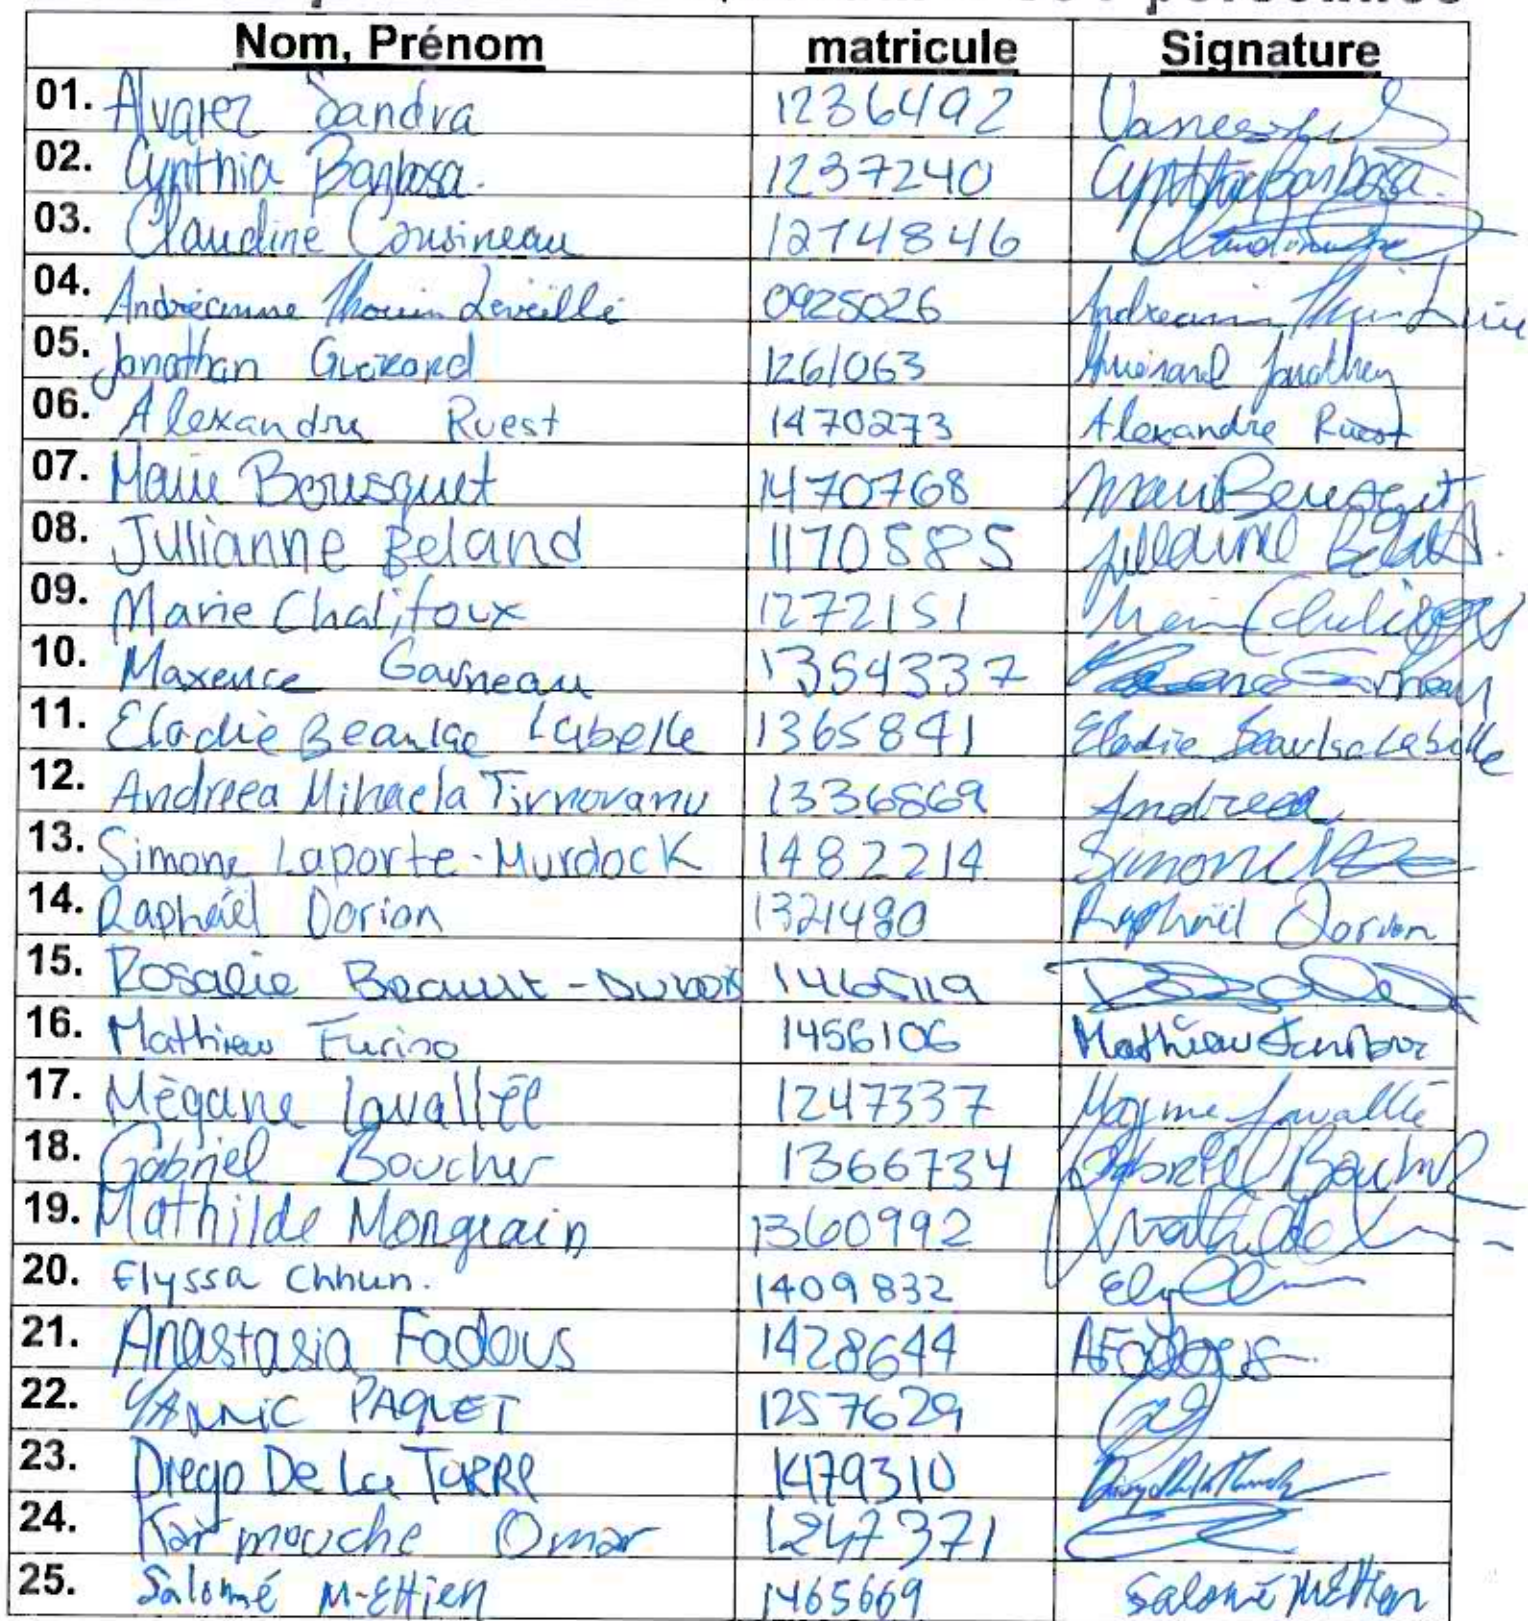 personnes
Nom, Prénom matricule Signature
01. Alvarez Sandra 1236492
02. Cynthia Barbosa. 1237240 Cynthia Barbosa.
03. Claudine Cousineau 1274846
04. Andréanne Thouin Léveillé 0925026
05. Jonathan Guerard 1261063 Guérard Jonathan
06. Alexandre Ruest 1470273 Alexandre Ruest
07. Marie Bousquet 1470768 Marie Bousquet
08. Julianne Beland 1170585 Julianne Beland
09. Marie Chalifoux 1272151
10. Maxence Garneau 1354337
11. Elodie Beaulac Labelle 1365841 Elodie Beaulac Labelle
12. Andreea Mihaela Tirnovanu 1336869 Andreea
13. Simone Laporte-Murdock 1482214 Simone
14. Raphaël Dorion 1321480 Raphaël Dorion
15. Rosalie 1465119
16. Mathieu Furino 1456106 Mathieu
17. Mégane Lavallée 1247337 Lavallée
18. Gabriel Boucher 1366734 Gabriel Boucher
19. Mathilde Mongrain 1360992 Mathilde
20. Elyssa Chhun. 1409832
21. Anastasia Fadous 1428644 AFadous
22. YANNIC PAQUET 1257629
23. Diego De La Torre 1479310
24. Karmouche Omar 1247371
25. Salomé M-Ethien 1465669 Salomé M-Ethien